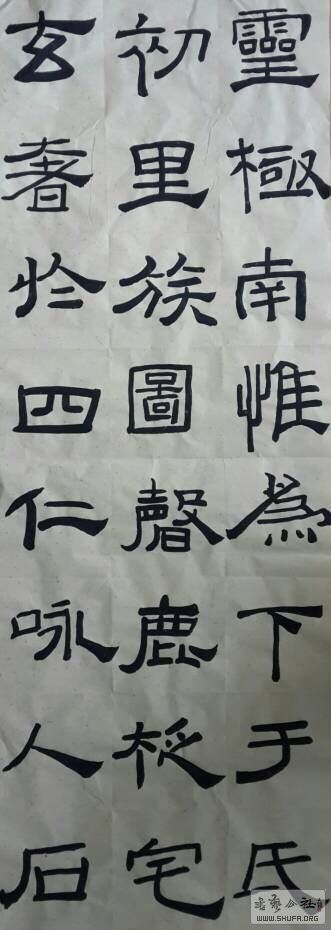 靈極南惟為下于氏
初里族圖聲鹿柉宅
玄奢於四仁咏人石
书艺公社
WWW.SHUFA.ORG